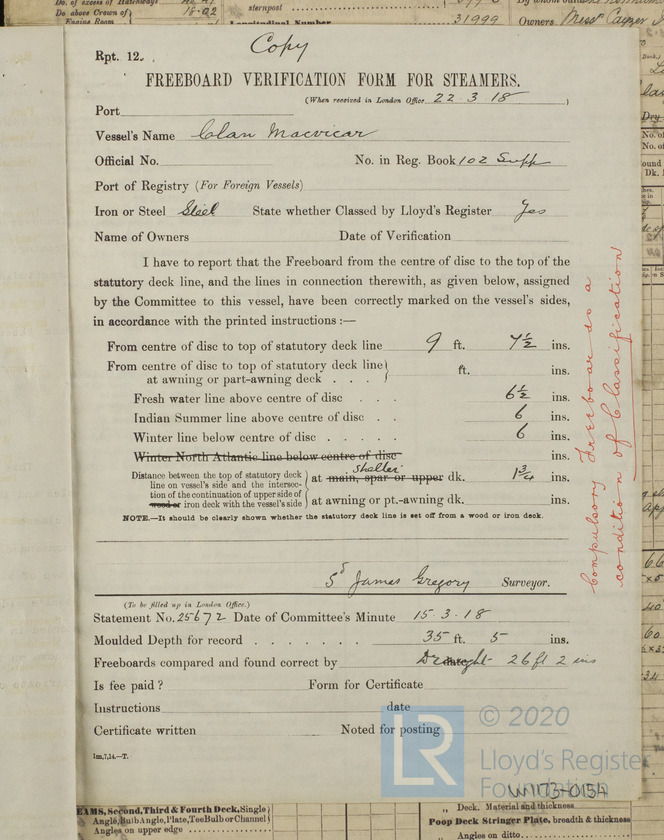 No. of excess of Hatchways
Do above Crown of
Engine Room
18.02
sternpost
Longitudinal Number
31999
Owners Messrs Cayzer
Copy
Rpt. 12.
FREEBOARD VERIFICATION FORM FOR STEAMERS.
(When received in London Office 22.3.18)
Port
Vessel's Name Clan Macvicar
Official No. No. in Reg. Book 102 Supp
Port of Registry (For Foreign Vessels)
Iron or Steel Steel State whether Classed by Lloyd's Register Yes
Name of Owners Date of Verification
I have to report that the Freeboard from the centre of disc to the top of the
statutory deck line, and the lines in connection therewith, as given below, assigned
by the Committee to this vessel, have been correctly marked on the vessel's sides,
in accordance with the printed instructions :—
From centre of disc to top of statutory deck line 9 ft. 7½ ins.
From centre of disc to top of statutory deck line
at awning or part-awning deck . . . ft. ins.
Fresh water line above centre of disc . . . 6½ ins.
Indian Summer line above centre of disc . . 6 ins.
Winter line below centre of disc . . . . . 6 ins.
Winter North Atlantic line below centre of disc ins.
Distance between the top of statutory deck
line on vessel's side and the intersec-
tion of the continuation of upper side of
wood or iron deck with the vessel's side
Shelter
at main, spar or upper dk. 1¾ ins.
at awning or pt.-awning dk. ins.
NOTE.—It should be clearly shown whether the statutory deck line is set off from a wood or iron deck.
Sd James Gregory Surveyor.
(To be filled up in London Office.)
Statement No. 25672 Date of Committee's Minute 15.3.18
Moulded Depth for record . . . . . . . 35 ft. 5 ins.
Freeboards compared and found correct by Draught 26 ft 2 ins
Is fee paid ? Form for Certificate
Instructions date
Certificate written Noted for posting
1m,7,14.—T.
Compulsory Freeboard as a
condition of Classification
© 2020
LR
Lloyd's Register
Foundation
W1173-0154
EAMS, Second, Third & Fourth Deck, Single
Angle, Bulb Angle, Plate, Tee Bulb or Channel
Angles on upper edge
„ Deck. Material and thickness
Poop Deck Stringer Plate, breadth & thickness
„ Angles on ditto